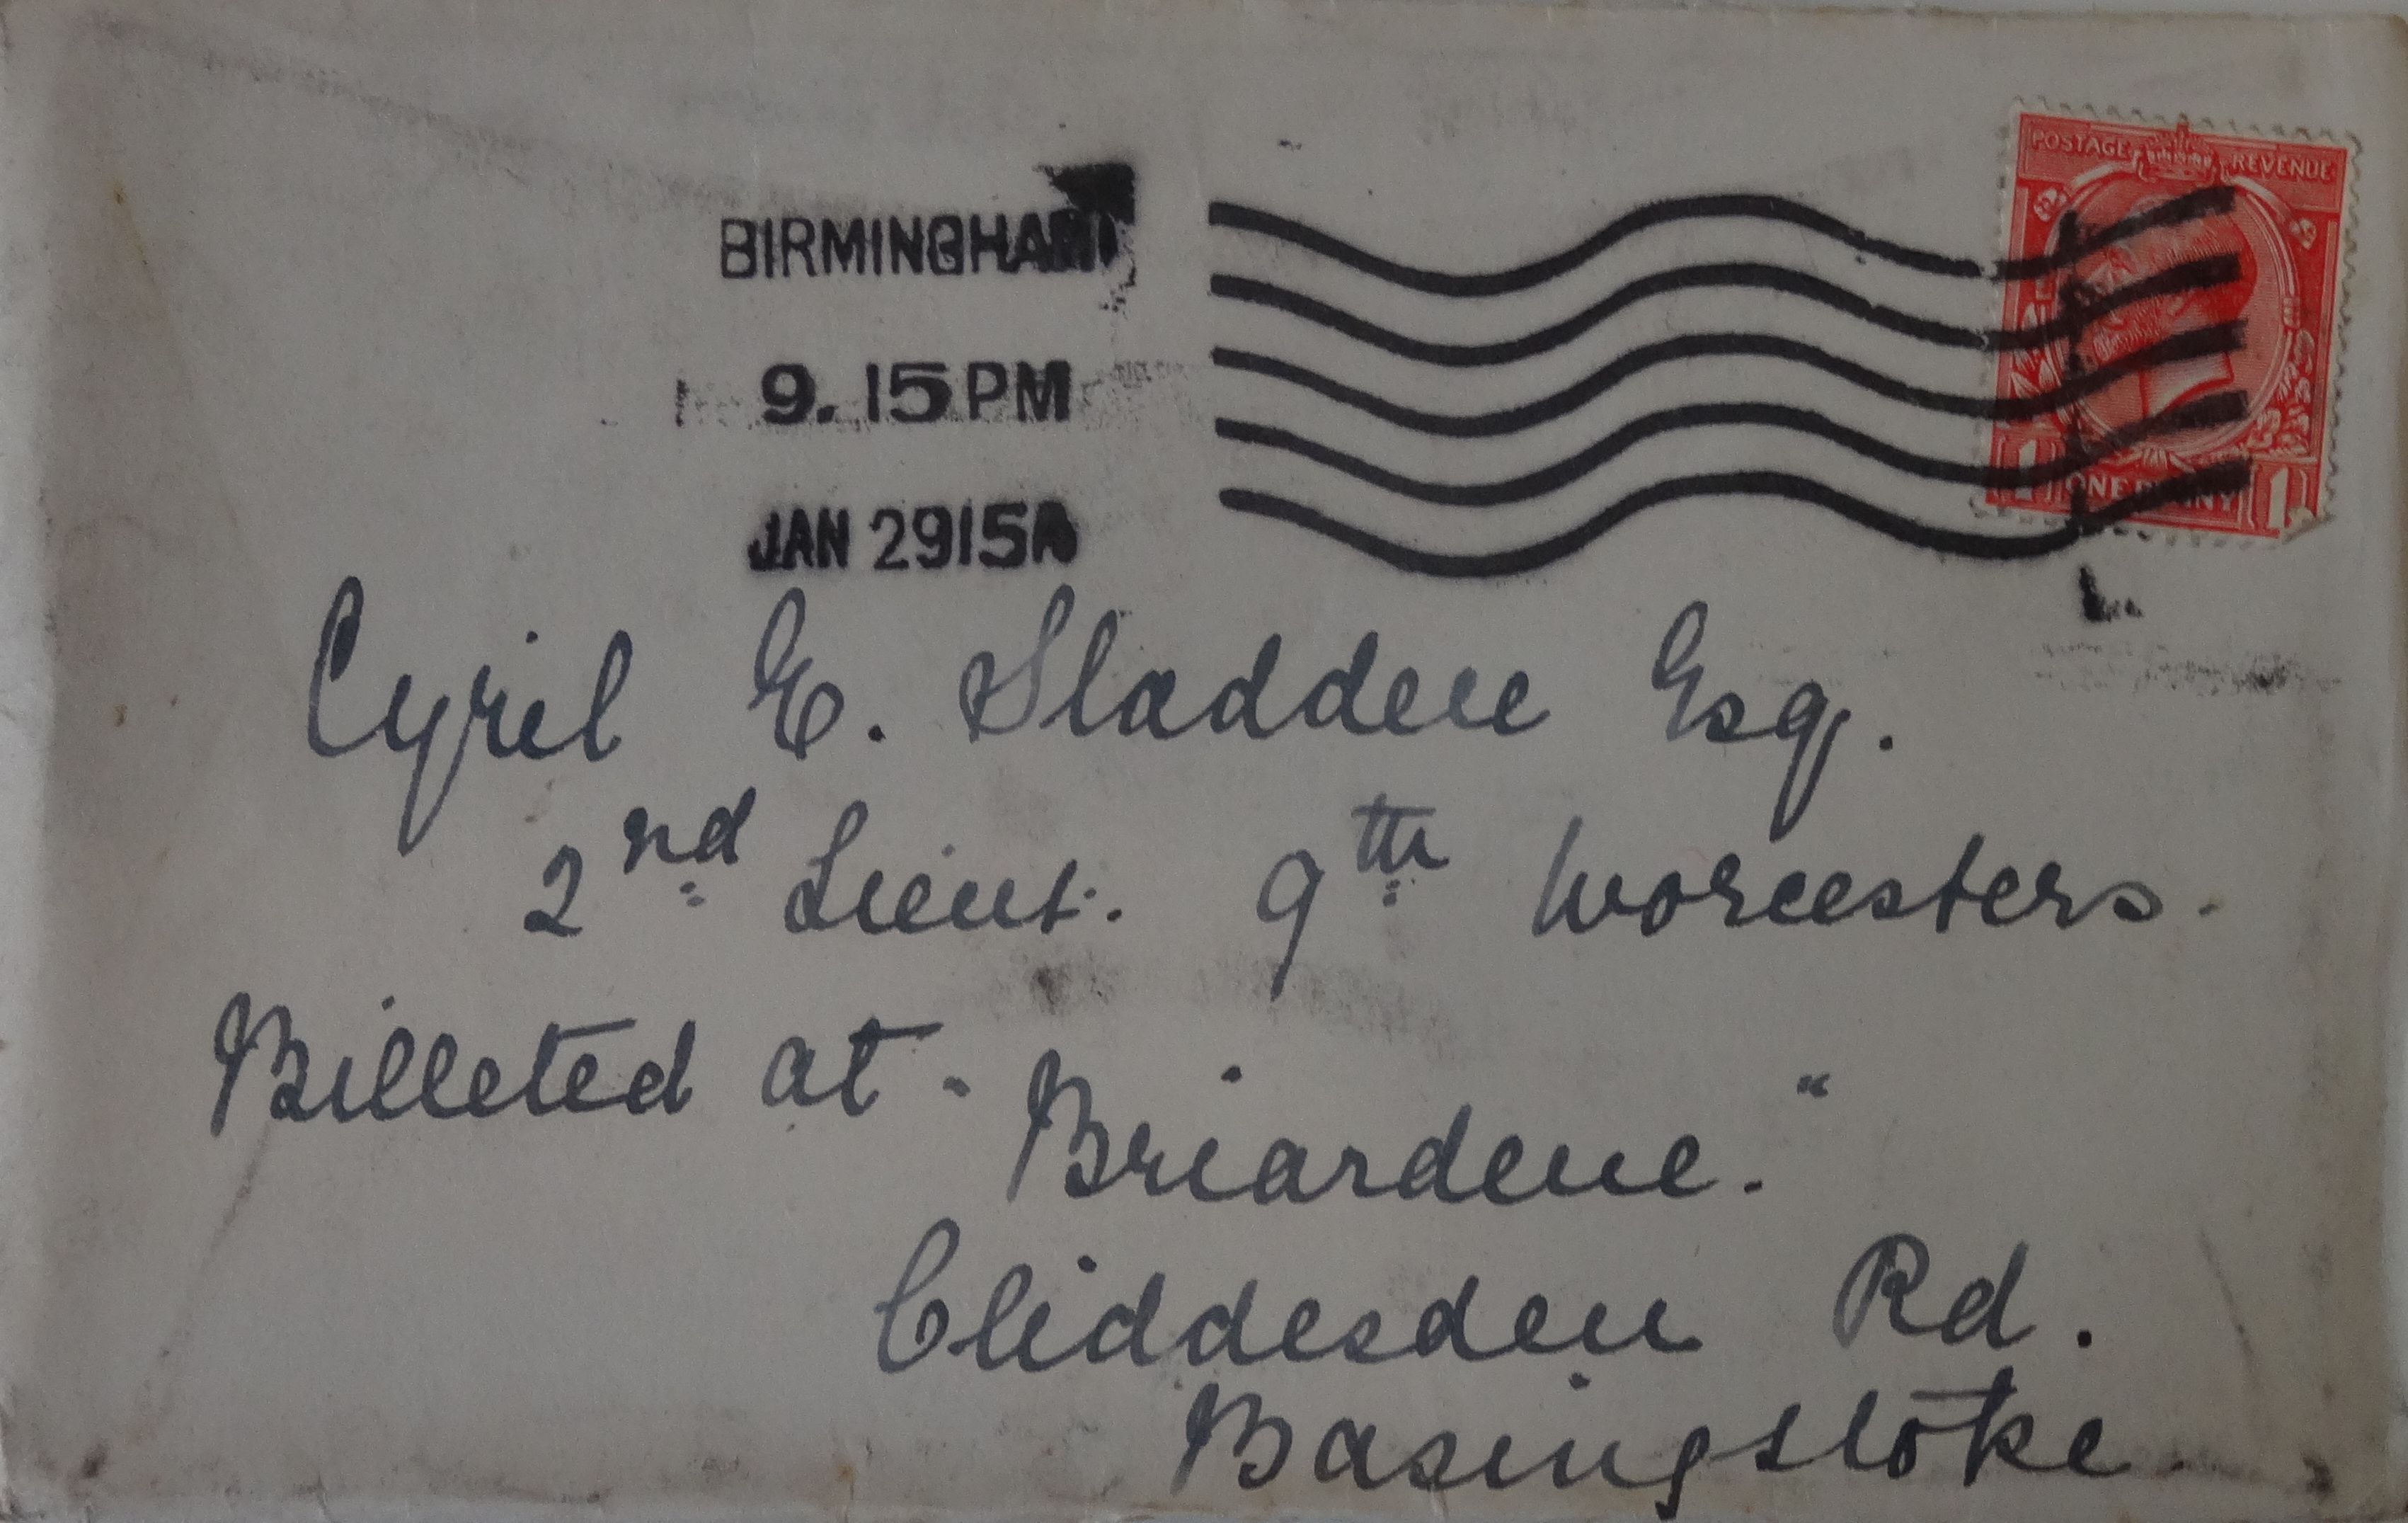 POSTAGE REVENUE
BIRMINGHAM
9.15PM
JAN 29 15A
1 ONE PENNY 1
Cyril E. Sladden Esq.
2nd Lieut. 9th Worcesters.
Billeted at "Briardene."
Cliddesden Rd.
Basingstoke